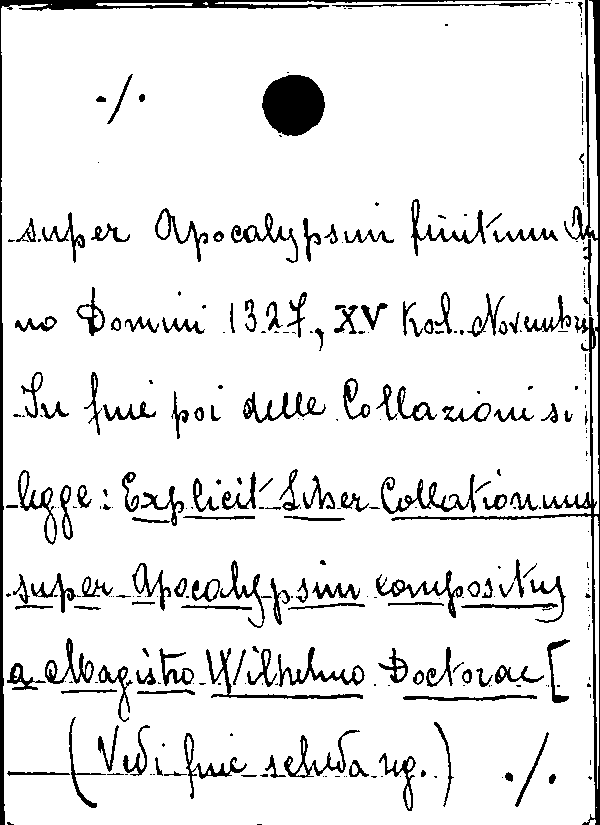 ./.
super Apocalypsim finitum An
no Domini 1327, XV Kol. Novembris.
In fine poi delle Collazioni si
legge: Explicit Liber Collationum
super Apocalypsim compositus
a Magistro Wilhelmo Doctorae [
(Vedi fine scheda seg.) ./.